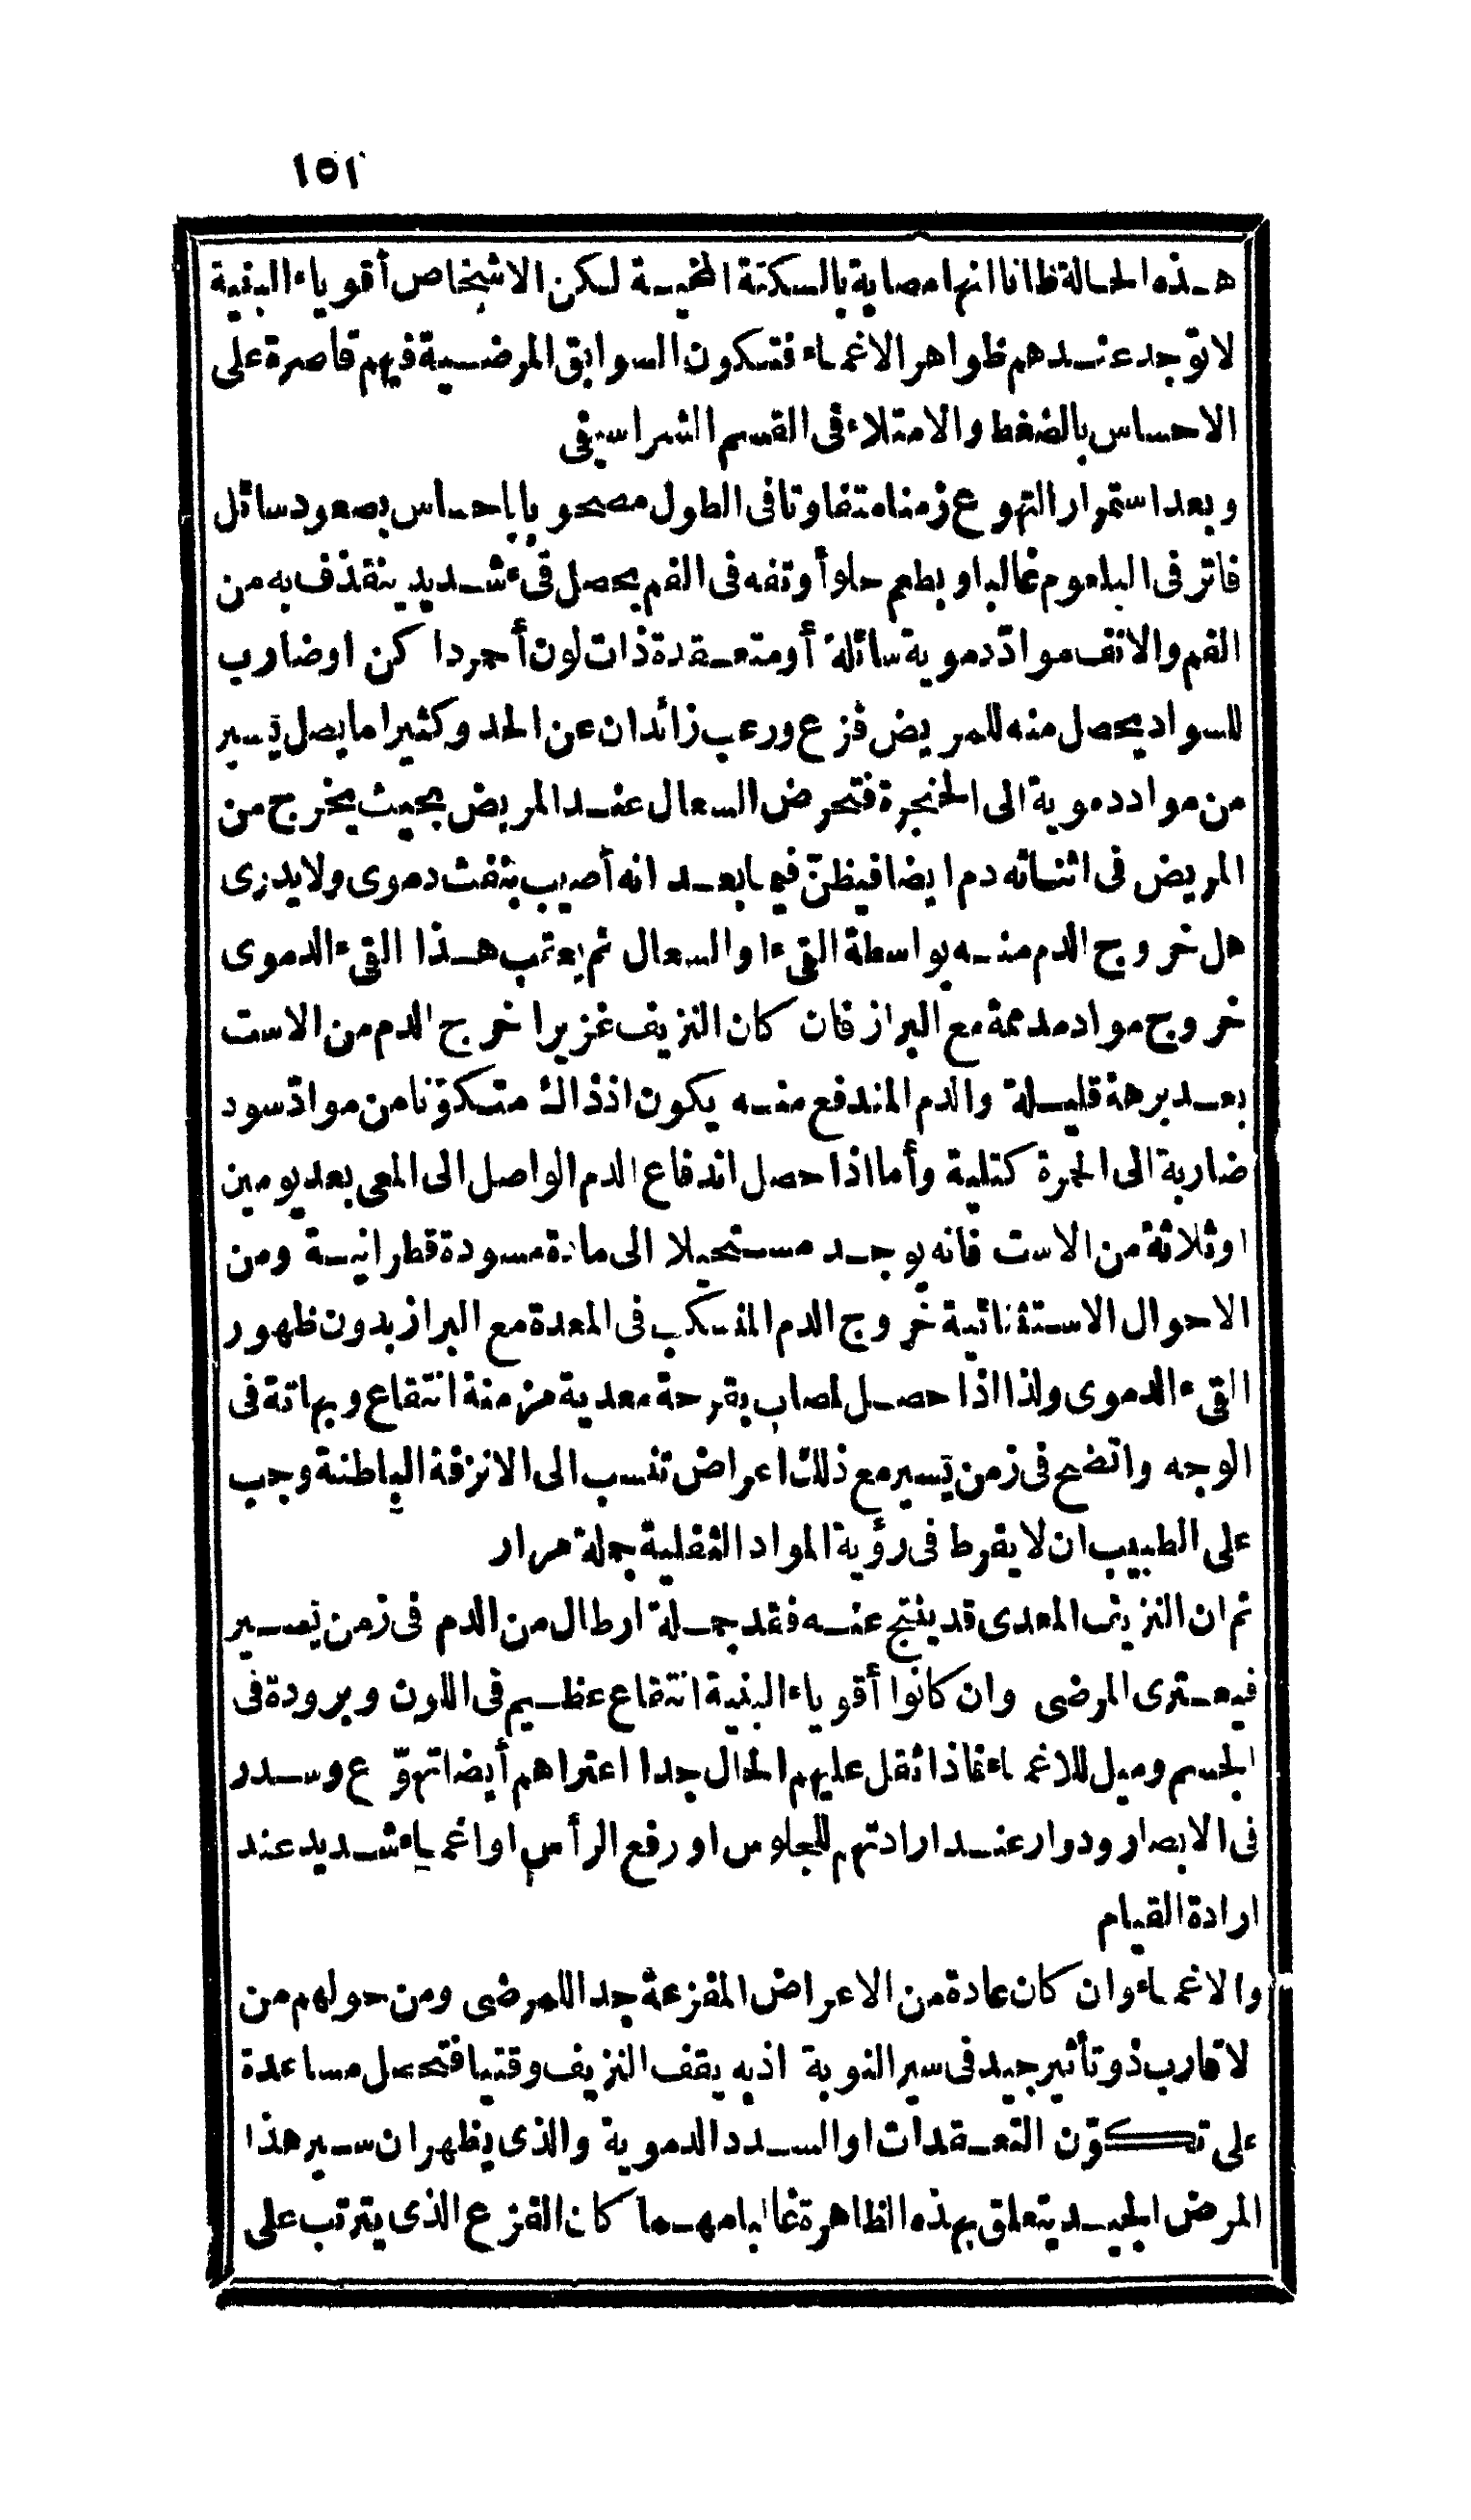 ١٥١
هذه الحالة ظانا انها مصابة بالسكتة المخية لكن الاشخاص أقوياء البنية
لا توجد عندهم ظواهر الاغماء فتكون السوابق المرضية فيهم قاصرة على
الاحساس بالضغط والامتلاء فى القسم الشراسيفى
وبعد استمرار التهوع زمنا متفاوتا فى الطول مصحوبا باحساس بصعود سائل
فاتر فى البلعوم غالبا وبطعم حلو أو تفه فى الفم يحصل قىء شديد ينقذف به من
الفم والانف موادّ دموية سائلة أو متعقدة ذات لون أحمر داكن او ضارب
للسواد يحصل منه للمريض فزع ورعب زائدان عن الحد وكثيرا ما يصل يسير
من مواد دموية الى الحنجرة فتحرض السعال عند المريض بحيث يخرج من
المريض فى اثنائه دم ايضا فيظنّ فيما بعد انه أصيب بنفث دموى ولا يدرى
هل خروج الدم منه بواسطة القىء او السعال ثم يعقب هذا القىء الدموى
خروج مواد مدممة مع البراز فان كان النزيف غزيرا خرج الدم من الاست
بعد برهة قليلة والدم المندفع منه يكون اذ ذاك متكوّنا من موادّ سود
ضاربة الى الحمرة كتلية وأما اذا حصل اندفاع الدم الواصل الى المعى بعد يومين
او ثلاثة من الاست فانه يوجد مستحيلا الى مادة مسودة قطرانية ومن
الاحوال الاستثنائية خروج الدم المنسكب فى المعدة مع البراز بدون ظهور
القىء الدموى ولذا اذا حصل لمصاب بقرحة معدية مزمنة انتقاع وبهاتة فى
الوجه واتضح فى زمن يسير مع ذلك اعراض تنسب الى الانزفة الباطنة وجب
على الطبيب ان لا يفرط فى رؤية المواد الثفلية جملة مرار
ثم ان النزيف المعدى قد ينتج عنه فقد جملة ارطال من الدم فى زمن يسير
فيعترى المرضى وان كانوا أقوياء البنية انتقاع عظيم فى اللون وبرودة فى
الجسم وميل للاغماء فاذا ثقل عليهم الحال جدا اعتراهم أيضا تهوّع وسدر
فى الابصار ودوار عند ارادتهم للجلوس او رفع الرأس او اغماء شديد عند
ارادة القيام
والاغماء وان كان عادة من الاعراض المفزعة جدا للمرضى ومن حولهم من
لاقارب ذو تأثير جيد فى سير النوبة اذ به يقف النزيف وقتيا فتحصل مساعدة
على تكوّن التعقدات او السدد الدموية والذى يظهر ان سير هذا
المرض الجيد يتعلق بهذه الظاهرة غالبا مهما كان الفزع الذى يترتب على